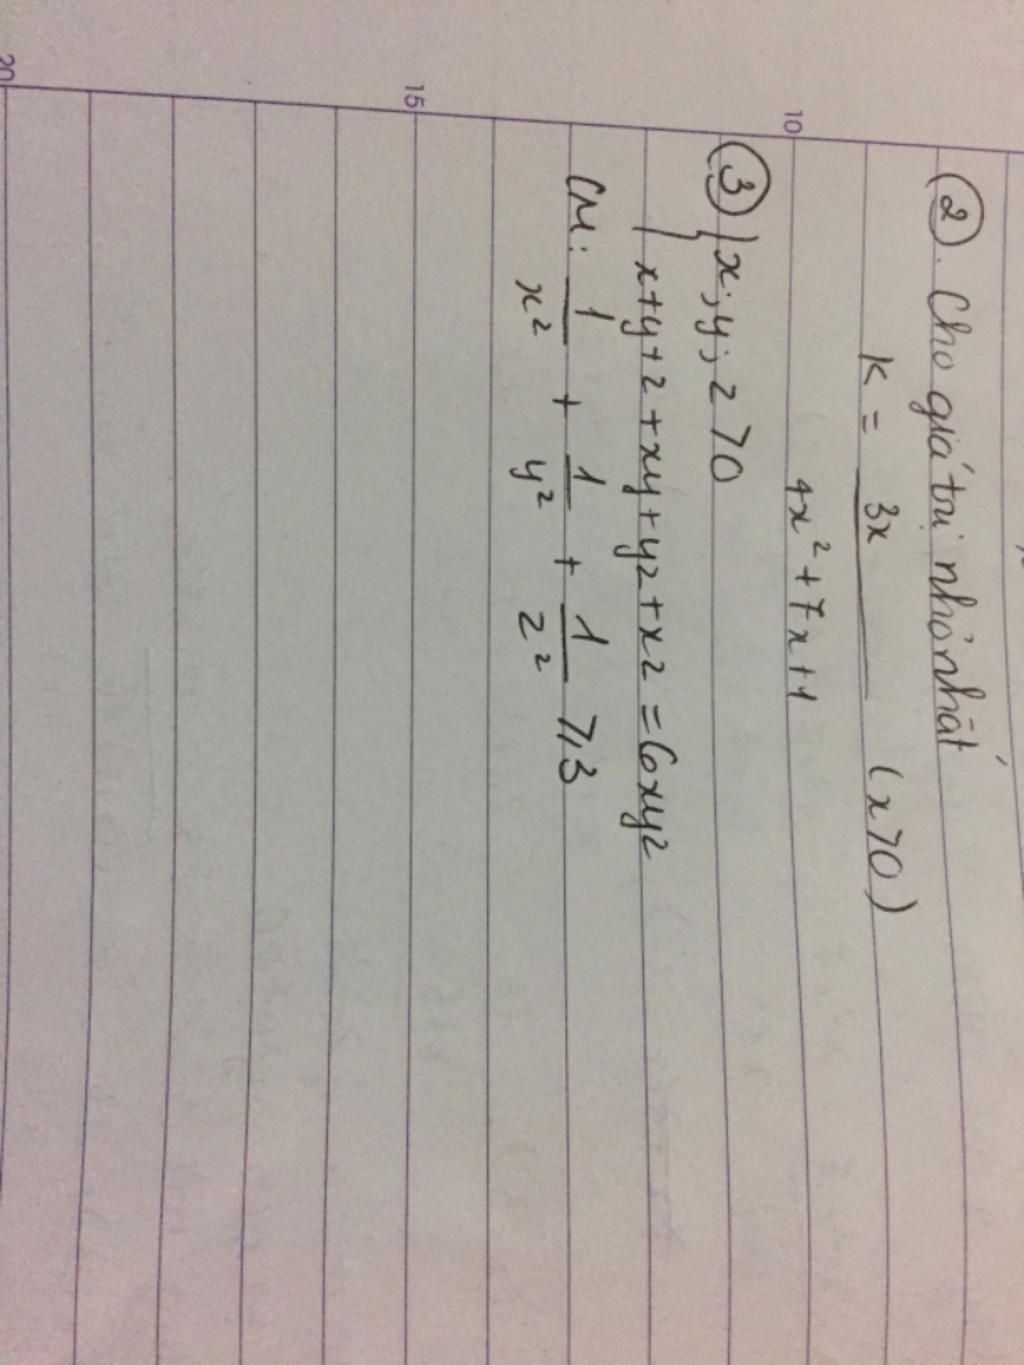 ②. Cho giá trị nhỏ nhất
K = 3x / 4x² + 7x + 1 (x > 0)
10
③ { x; y; z > 0
x + y + z + xy + yz + xz = 6xyz
CM: 1/x² + 1/y² + 1/z² ≥ 3
15
20